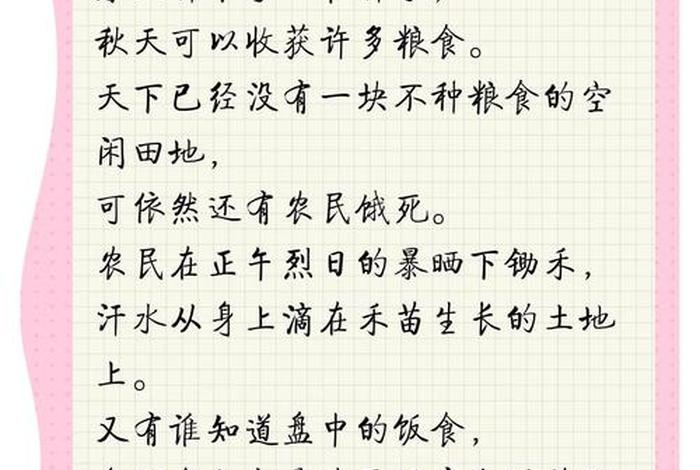 秋天可以收获许多粮食。
天下已经没有一块不种粮食的空
闲田地，
可依然还有农民饿死。
农民在正午烈日的暴晒下锄禾，
汗水从身上滴在禾苗生长的土地
上。
又有谁知道盘中的饭食，